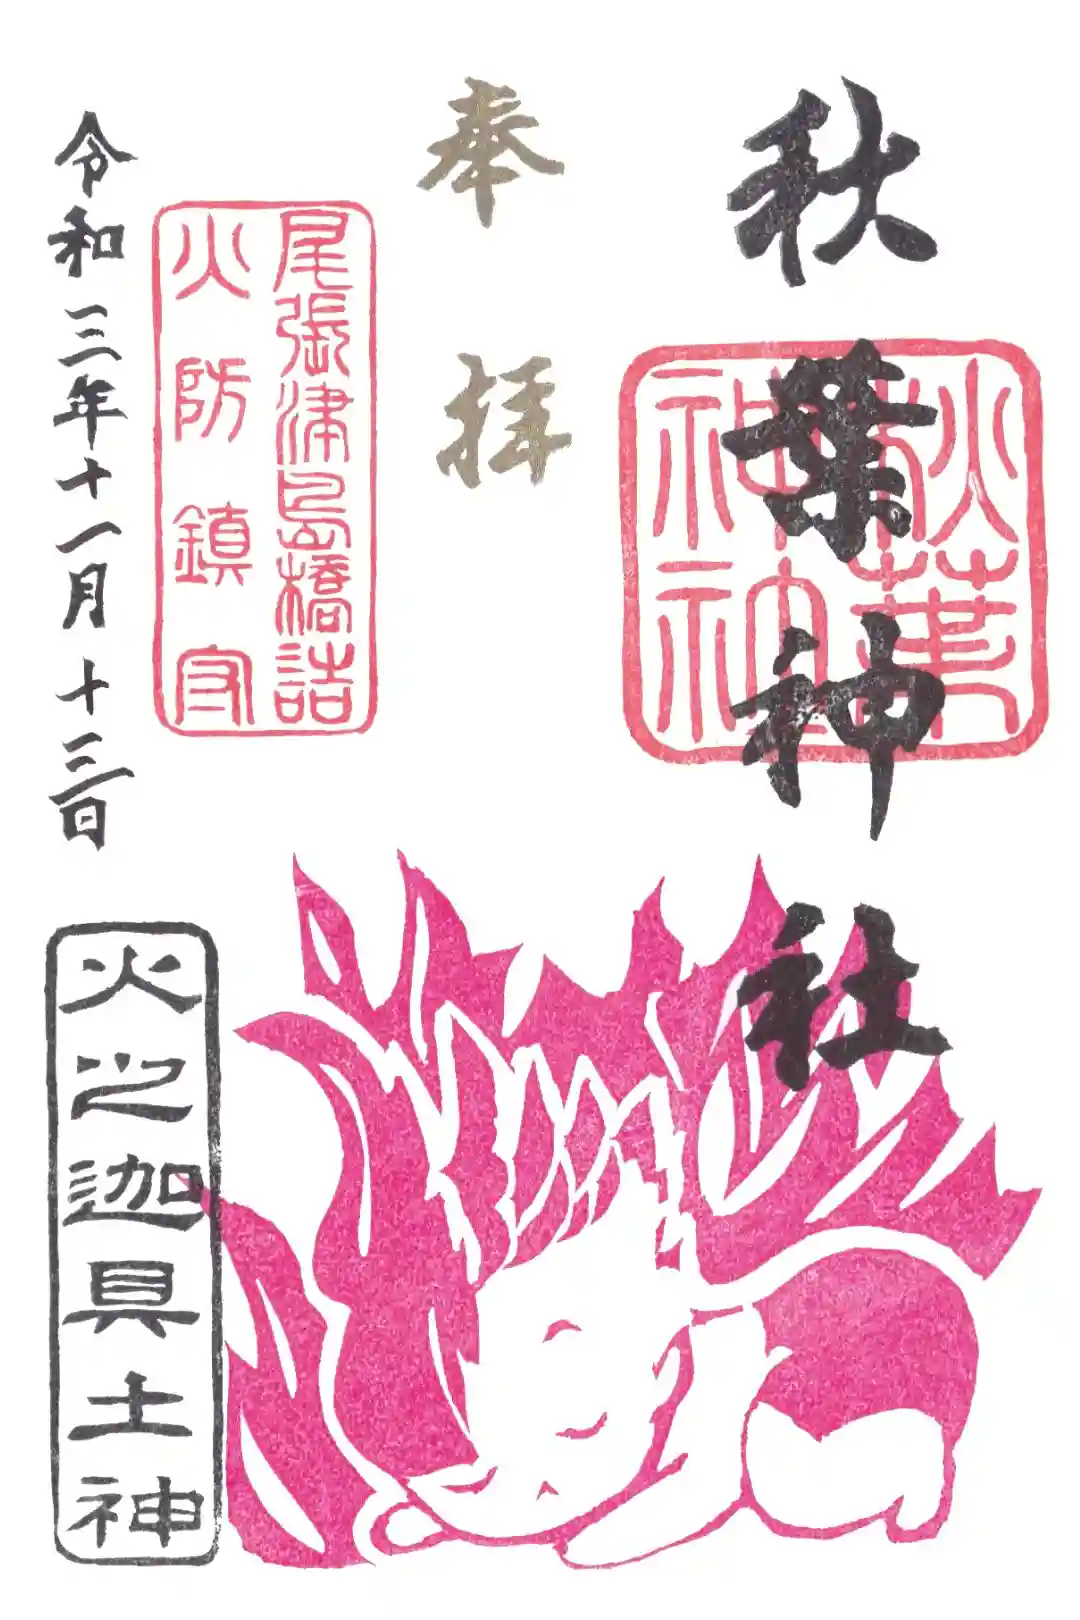 秋葉神社
秋葉
神社
奉拝
尾張津島橋詰
火防鎮守
令和三年十一月十三日
火之迦具土神